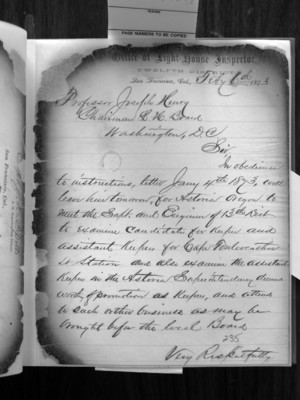 PAGE NUMBERS TO BE COPIED
Office of Light House Inspector,
TWELFTH DISTRICT,
San Francisco, Cal., Feby 1873
Professor Joseph Henry
Chairman L. H. Board
Washington, D.C.
Sir
In obedience
to instructions, letter Jany 4th 1873, I will
leave here tomorrow, for Astoria Oregon to
meet the Supt and Engineer of 13th Dist
to examine candidate for Keeper and
assistant Keeper for Cape Foulweather
Station and also examine the assistant
Keepers in the Astoria Superintendency deemed
worth of promotion as Keepers, and attend
to such other business as may be
brought before the local Board
235
Very Respectfully
San Francisco, Cal.